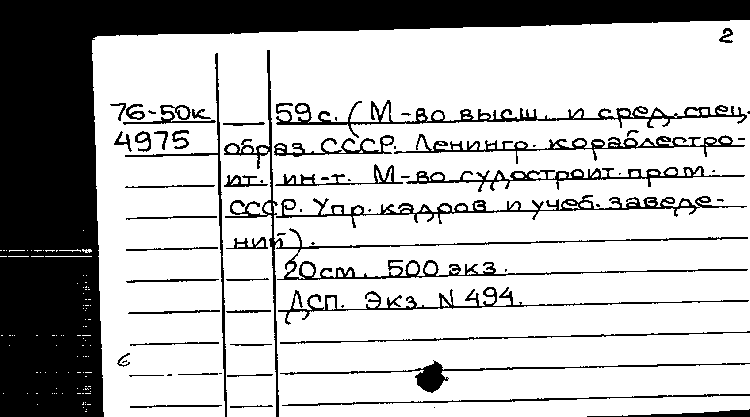 2
76-50к 59 с. (М-во высш. и сред. спец.
4975 образ. СССР. Ленингр. кораблестро-
ит. ин-т. М-во судостроит. пром.
СССР. Упр. кадров и учеб. заведе-
ний).
20 см. 500 экз.
ДСП. Экз. N 494.
6